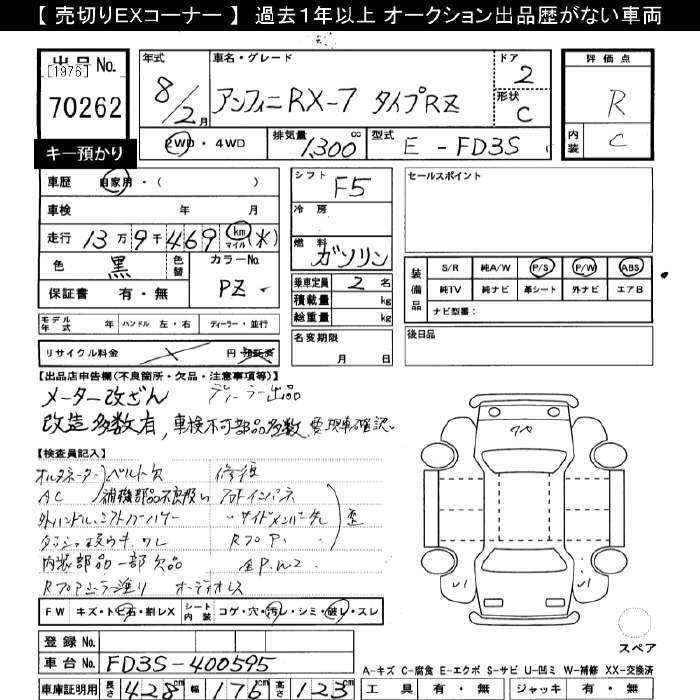 【 売切りEXコーナー 】 過去1年以上 オークション出品歴がない車両
出品 No.
[1976]
70262
キー預かり
年式 8/2月
車名・グレード アンフィニRX-7 タイプRZ
ドア 2
形状 C
2WD・4WD
排気量 1,300 cc
型式 E - FD3S
評価点 R
内装 C
車歴 自家用・( )
車検 年 月
走行 13万9千469 km マイル (米)
色 黒 色替
カラーNo. PZ
保証書 有・無
シフト F5
冷房
燃料 ガソリン
乗車定員 2 名
積載量 kg
総重量 kg
名変期限 月 日
セールスポイント
装備品
S/R 純A/W P/S P/W ABS
純TV 純ナビ 革シート 外ナビ エアB
ナビ型番:
後日品
モデル年式 年 ハンドル 左・右 ディーラー・並行
リサイクル料金 円 預託済
【出品店申告欄(不良箇所・欠品・注意事項等)】
メーター改ざん ディーラー出品
改造多数有, 車検不可部品多数 要現車確認。
【検査員記入】
オルタネーター ベルト欠 修復
AC 補機部品不良扱い フロトインパネ
外ハンドル、
内装部品一部欠品
オーディオレス
歪
ワヤ
FW キズ・トビ石・割レX シート内装 コゲ・穴・汚レ・シミ・破レ・スレ
登録 No.
車台 No. FD3S-400595
車庫証明用 長さ 428cm 幅 176cm 高さ 123cm
スペア
A-キズ C-腐食 E-エクボ S-サビ U-凹ミ W-補修 XX-交換済
工具 有・無 ジャッキ 有・無